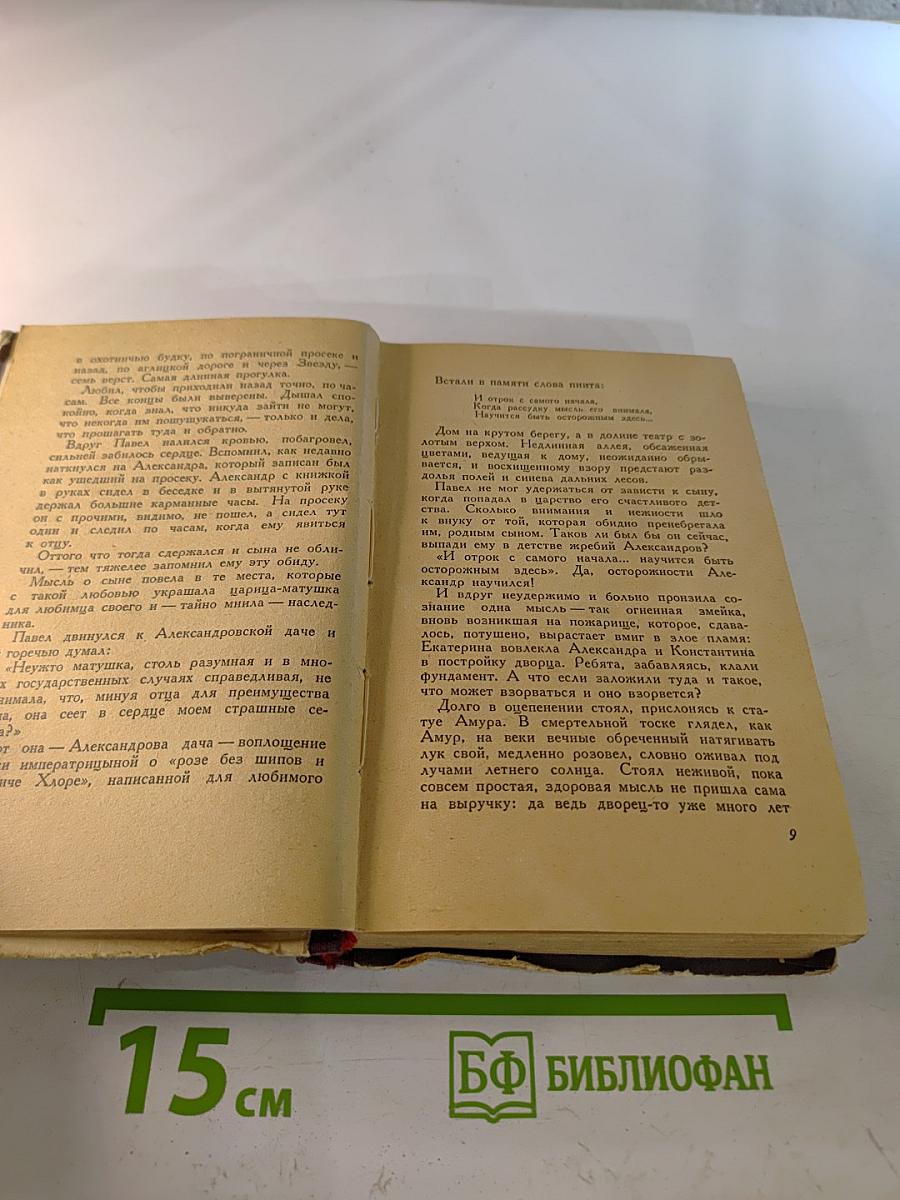 в охотничью будку, по пограничной просеке и
назад, по аглицкой дороге и через Звезду, —
семь верст. Самая длинная прогулка.
Любил, чтобы приходили назад точно, по ча-
сам. Все концы были выверены. Дышал спо-
койно, когда знал, что никуда зайти не могут,
что некогда им пошушукаться, — только и дела,
что прошагать туда и обратно.
Вдруг Павел налился кровью, побагровел,
сильней забилось сердце. Вспомнил, как недавно
наткнулся на Александра, который записан был
как ушедший на просеку. Александр с книжкой
в руках сидел в беседке и в вытянутой руке
держал большие карманные часы. На просеку
он с прочими, видимо, не пошел, а сидел тут
один и следил по часам, когда ему явиться
к отцу.
Оттого что тогда сдержался и сына не обли-
чил, — тем тяжелее запомнил ему эту обиду.
Мысль о сыне повела в те места, которые
с такой любовью украшала царица-матушка
для любимца своего и — тайно мнила — наслед-
ника.
Павел двинулся к Александровской даче и
горечью думал:
«Неужто матушка, столь разумная и в мно-
х государственных случаях справедливая, не
нимала, что, минуя отца для преимущества
на, она сеет в сердце моем страшные се-
а?»
от она — Александрова дача — воплощение
и императрицыной о «розе без шипов и
иче Хлоре», написанной для любимого
Встали в памяти слова пиита:
И отрок с самого начала,
Когда рассудку мысль его внимала,
Научится быть осторожным здесь...
Дом на крутом берегу, а в долине театр с зо-
лотым верхом. Недлинная аллея, обсаженная
цветами, ведущая к дому, неожиданно обры-
вается, и восхищенному взору предстают раз-
долья полей и синева дальних лесов.
Павел не мог удержаться от зависти к сыну,
когда попадал в царство его счастливого дет-
ства. Сколько внимания и нежности шло
к внуку от той, которая обидно пренебрегала
им, родным сыном. Таков ли был бы он сейчас,
выпади ему в детстве жребий Александров?
«И отрок с самого начала... научится быть
осторожным здесь». Да, осторожности Але-
ксандр научился!
И вдруг неудержимо и больно пронзила со-
знание одна мысль — так огненная змейка,
вновь возникшая на пожарище, которое, сдава-
лось, потушено, вырастает вмиг в злое пламя:
Екатерина вовлекла Александра и Константина
в постройку дворца. Ребята, забавляясь, клали
фундамент. А что если заложили туда и такое,
что может взорваться и оно взорвется?
Долго в оцепенении стоял, прислонясь к ста-
туе Амура. В смертельной тоске глядел, как
Амур, на веки вечные обреченный натягивать
лук свой, медленно розовел, словно оживал под
лучами летнего солнца. Стоял неживой, пока
совсем простая, здоровая мысль не пришла сама
на выручку: да ведь дворец-то уже много лет
9
15 см
БФ БИБЛИОФАН